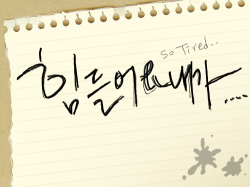 so Tired..
힘들어 내가 ....